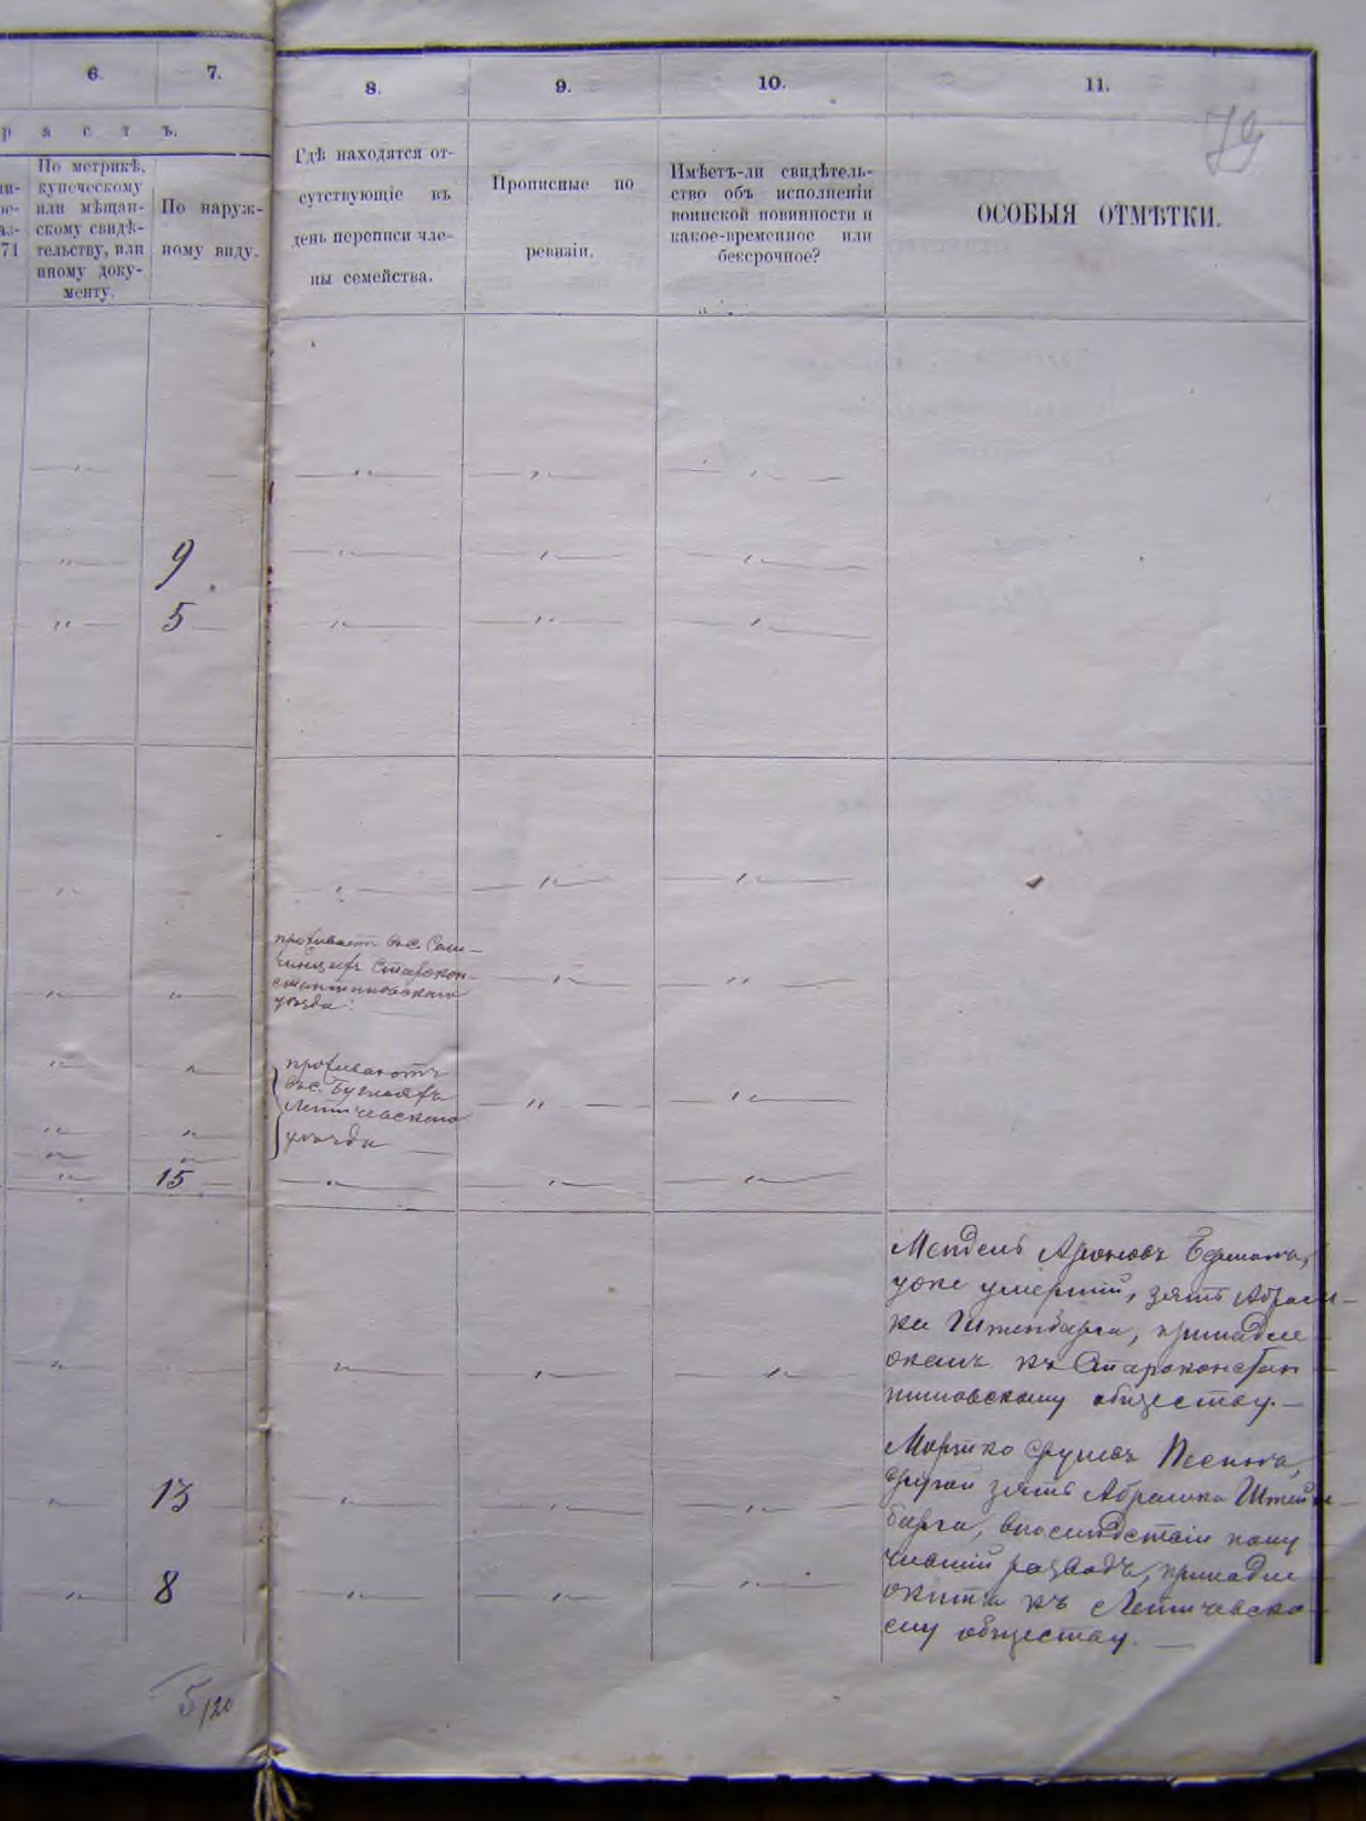 6.
7.
8.
9.
10.
11.
79
р а с т ъ.
По метрикѣ,
купеческому
или мѣщан-
скому свидѣ-
тельству, или
иному доку-
менту.
71
По наруж-
ному виду.
Гдѣ находятся от-
сутствующіе въ
день переписи чле-
ны семейства.
Прописные по
ревизіи.
Имѣетъ-ли свидѣтель-
ство объ исполненіи
воинской повинности и
какое-временное или
безсрочное?
ОСОБЫЯ ОТМѢТКИ.
9
5
проживаетъ въ с.
Старокон-
стантиновскаго
уѣзда.
проживаютъ
въ с.
Летичевскаго
уѣзда
15
Мендель Ароновъ
уже умершій, зять Абрам-
ки Штенбарга, принадле
жалъ къ Староконстан
тиновскому обществу.
13
Мортко Сруловъ
другой зять Абрамка Штейн
барга, впослѣдствіи полу
чившій разводъ, принадле
8
житъ къ Летичевско
му обществу.
5/20